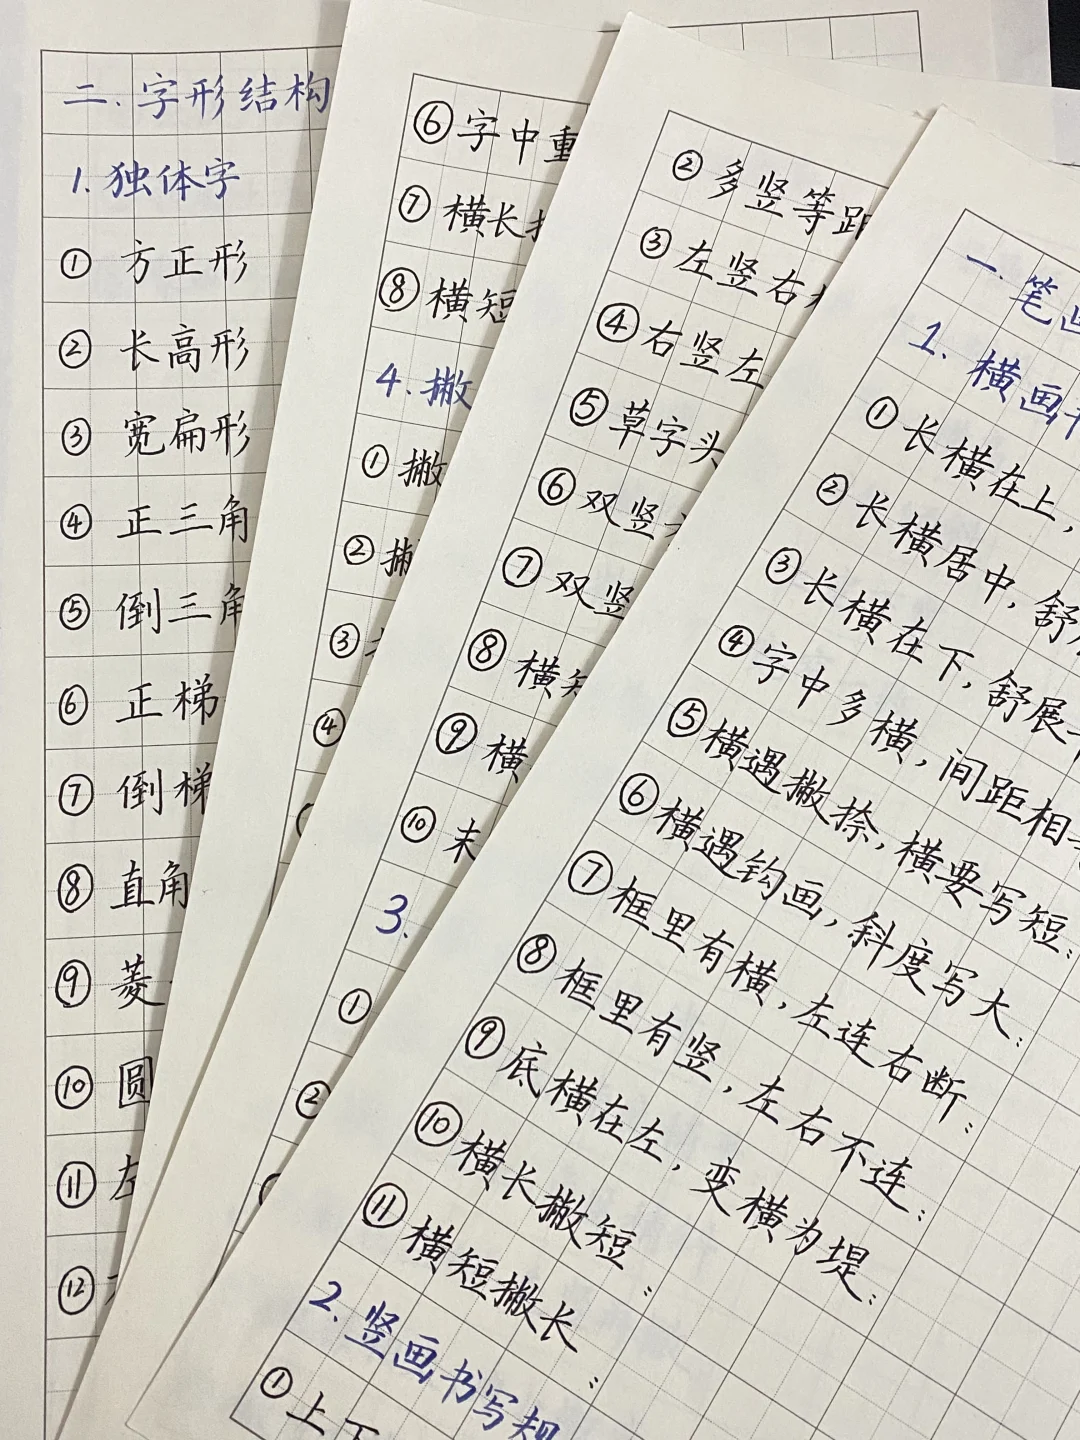 二.字形结构
1.独体字
① 方正形
② 长高形
③ 宽扁形
④ 正三角
⑤ 倒三角
⑥ 正梯
⑦ 倒梯
⑧ 直角
⑨ 菱
⑩ 圆
⑪ 左
⑫
⑥ 字中重
⑦ 横长
⑧ 横短
4.撇
① 撇
② 撇
③
④
② 多竖等距
③ 左竖右
④ 右竖左
⑤ 草字头
⑥ 双竖
⑦ 双竖
⑧ 横短
⑨ 横
⑩ 末
3.
①
②
一.笔画
1.横画书
① 长横在上,
② 长横居中,舒
③ 长横在下,舒展
④ 字中多横,间距相等
⑤ 横遇撇捺,横要写短:
⑥ 横遇钩画,斜度写大:
⑦ 框里有横,左连右断:
⑧ 框里有竖,左右不连:
⑨ 底横在左,变横为堤:
⑩ 横长撇短:
⑪ 横短撇长:
2.竖画书写规
① 上下